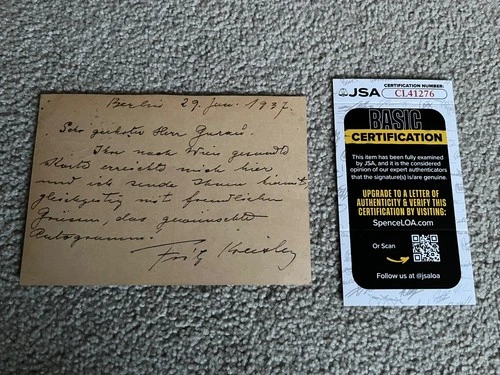 Berlin 29. Jan. 1937.
Sehr geehrter Herr
Ihre nach Wien gesandte
Karte erreichte mich hier
und ich sende Ihnen hiermit,
gleichzeitig mit freundlichen
Grüssen das gewünschte
Autogramm.
Fritz Kreisler
JSA
CERTIFICATION NUMBER:
CL41276
BASIC
CERTIFICATION
This item has been fully examined
by JSA, and it is the considered
opinion of our expert authenticators
that the signature(s) is/are genuine.
UPGRADE TO A LETTER OF
AUTHENTICITY & VERIFY THIS
CERTIFICATION BY VISITING:
SpenceLOA.com
Or Scan
Follow us at @jsaloa